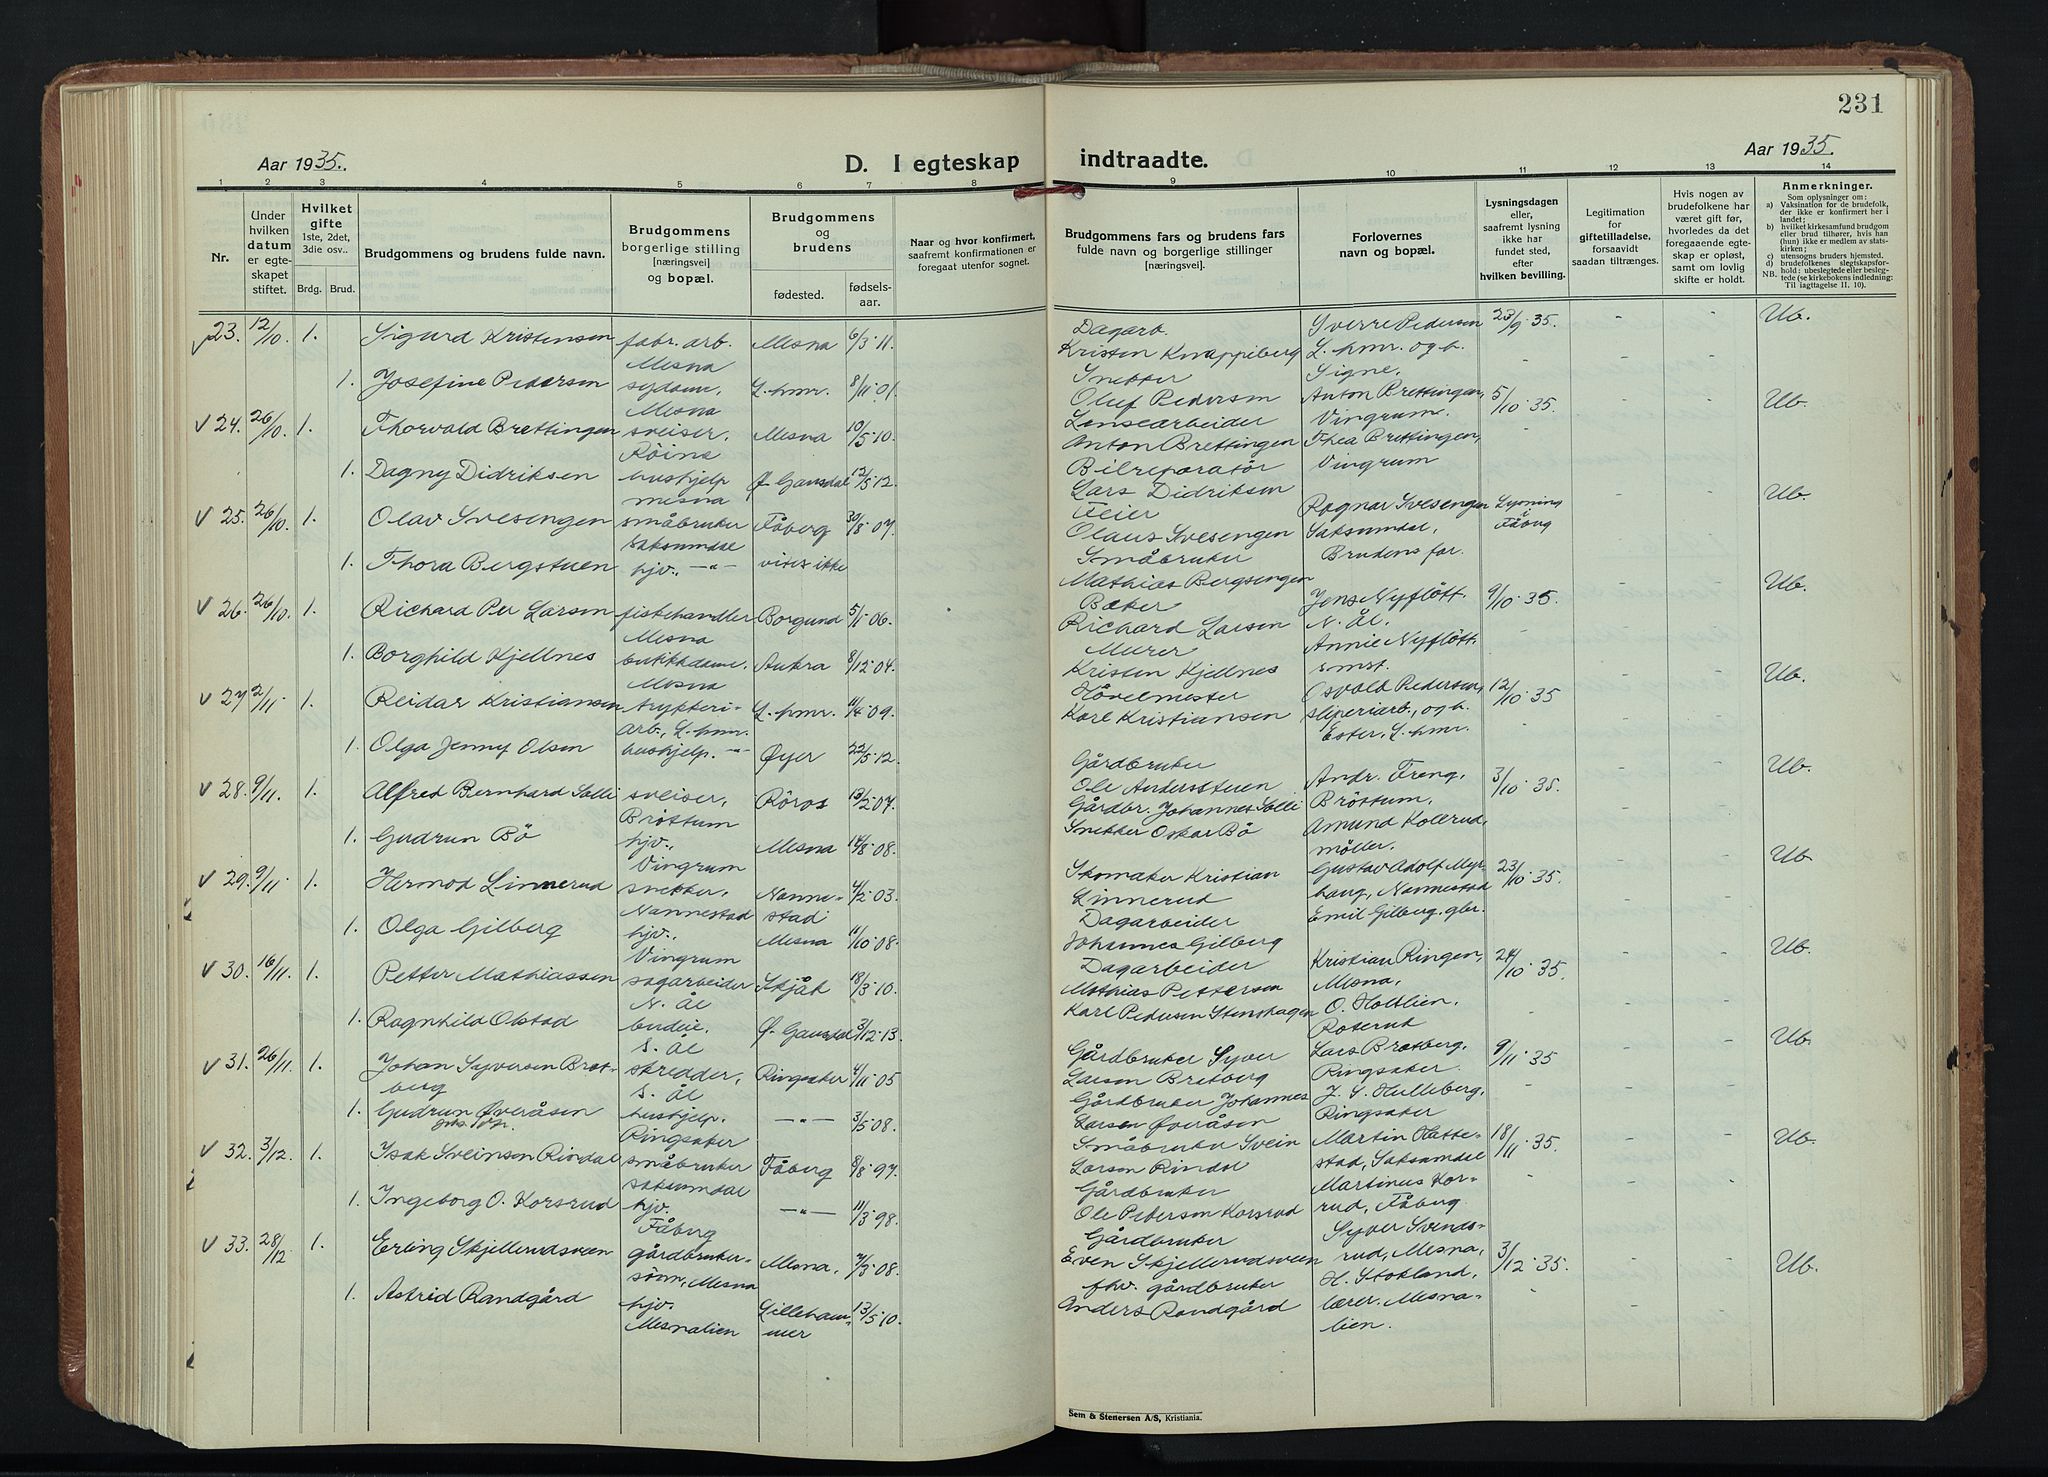 231
Aar 1935.
D. I egteskap indtraadte.
Aar 1935.
1 2 3 4 5 6 7 8 9 10 11 12 13 14
Nr.
Under hvilken datum er egteskapet stiftet.
Hvilket gifte
1ste, 2det, 3die osv..
Brdg. Brud.
Brudgommens og brudens fulde navn.
Brudgommens borgerlige stilling [næringsvei] og bopæl.
Brudgommens og brudens
fødested.
fødselsaar.
Naar og hvor konfirmert, saafremt konfirmationen er foregaat utenfor sognet.
Brudgommens fars og brudens fars fulde navn og borgerlige stillinger [næringsvei].
Forlovernes navn og bopæl.
Lysningsdagen eller, saafremt lysning ikke har fundet sted, efter hvilken bevilling.
Legitimation for giftetilladelse, forsaavidt saadan tiltrænges.
Hvis nogen av brudefolkene har været gift før, hvorledes da det foregaaende egteskap er opløst, samt om lovlig skifte er holdt.
Anmerkninger.
Som oplysninger om:
a) Vaksination for de brudefolk, der ikke er konfirmert her i landet;
b) hvilket kirkesamfund brudgom eller brud tilhører, hvis han (hun) ikke er medlem av statskirken;
c) utensogns bruders hjemsted.
d) brudefolkenes slegtskapsforhold: ubeslegtede eller beslegtede (se kirkebokens indledning: Til iagttagelse 11, 10).
NB.
23. 12/10. 1. Sigurd Kristensen fabr. arb. Mesna Mesna 6/3 11. Dagarb. Kristen Knappiberg Sverre Pedersen L.hmr. og h. Signe. 23/9 35. - - Ub.
1. Josefine Pedersen sydame, Mesna L.hmr. 8/11 01. Snekker Oluf Pedersen
V 24. 26/10. 1. Thorvald Brettingen sveiser. Röine Mesna 10/5 10. Lenseärbeider Anton Brettingen Anton Brettingen, Vingrum. 5/10 35. - - Ub.
1. Dagny Didriksen hushjelp mesna Ø. Gausdal 12/5 12. Bilreparatör Lars Didriksen Thea Brettingen, Vingrum
V 25. 26/10. 1. Olav Svesengen småbruker Saksumdal Fåberg 30/8 07. Feier Olaus Svesengen Ragnar Svesengen Saksumdal, Lysning i Fåbrg - - Ub.
1. Thora Bergstuen hjv., -"- vites ikke Småbruker Mathias Bergsengen Brudens far.
V 26. 26/10. 1. Richard Per Larsen fiskehandler Mesna Borgund 5/1 06. Baker Richard Larsen Jens Nyflött. N. Ål. 9/10 35. - - Ub.
1. Borghild Kjellnes butikkdame. Mesna Aukra 8/12 04. Murer Kristen Kjellnes Annie Nyflött. smst.
V 27 2/11. 1. Reidar Kristiansen trykkeriarb., L.hmr. L.hmr. 11/4 09. Hövelmester Karl Kristiansen Osvald Pedersen, sliperiarb., og h. Ester, L.hmr. 12/10 35 - - Ub.
1. Olga Jenny Olsen hushjelp. -"- Øyer 22/5 12. Gårdbruker Ole Andersstuen
V 28. 9/11. 1. Alfred Bernhard Solli sveiser, Bröttum Röros 13/2 07. Gårdbr. Johannes Solli Andr. Freng, Bröttum. 3/10 35. - - Ub.
1. Gudrun Bö hjv. Vingrum Mesna 14/8 08. Snekker Oskar Bö Amund Kollrud, möller.
V 29. 9/11. 1. Hermod Linnerud snekker, Nannestad Nannestad 4/2 03. Skomaker Kristian Linnerud Gustav Adolf Myrhaug, Nannestad 23/10 35. - - Ub.
1. Olga Gilberg hjv., Vingrum Mesna 11/10 08. Dagarbeider Johannes Gilberg Emil Gilberg. gbr.
V 30. 16/11. 1. Petter Mathiassen sagarbeider N. Ål Skjåk 18/3 10. Dagarbeider Mathias Pettersen Kristian Ringen, Mesna. 24/10 35. - - Ub.
1. Ragnhild Olstad budeie. S. Ål Ø. Gausdal 3/12 13. Karl Pedersen Stenshagen O. Holtlien. Roserud
V 31. 26/11. 1. Johan Syversen Bratberg skredder, S. Ål Ringsaker 4/11 05 Gårdbruker Syver Larsen Bratberg Lars Bratberg. Ringsaker. 9/11 35 - - Ub.
1. Gudrun Øveråsen hushjelp. Ringsaker -"- 3/5 08. Gårdbruker Johannes Larsen Øveråsen J. S. Hulleberg, Ringsaker
V 32. 3/12. 1. Isak Sveinsen Rindal småbruker Saksumdal Fåberg 8/8 97. Småbruker Svein Larsen Rindal Martin Hattestad, Saksumdal 18/11 35. - - Ub.
1. Ingeborg O. Korsrud hjv. Fåberg -"- 11/3 98. Gårdbruker Ole Pedersen Korsrud Martinus Korrud, Fåberg.
V 33. 28/12 1. Erling Skjellerudsveen gårdbrukersönn, Mesna Mesna, 7/3 08. Gårdbruker Even Skjellerudsveen Syver Svendsrud, Mesna, 3/12 35. - - Ub.
1. Astrid Randgård hjv. Mesnalien Lillehammer 13/5 10. fhv. gårdbruker Anders Randgård H. Stokland, lærer. Mesnalien.
Sem & Stenersen A/S, Kristiania.